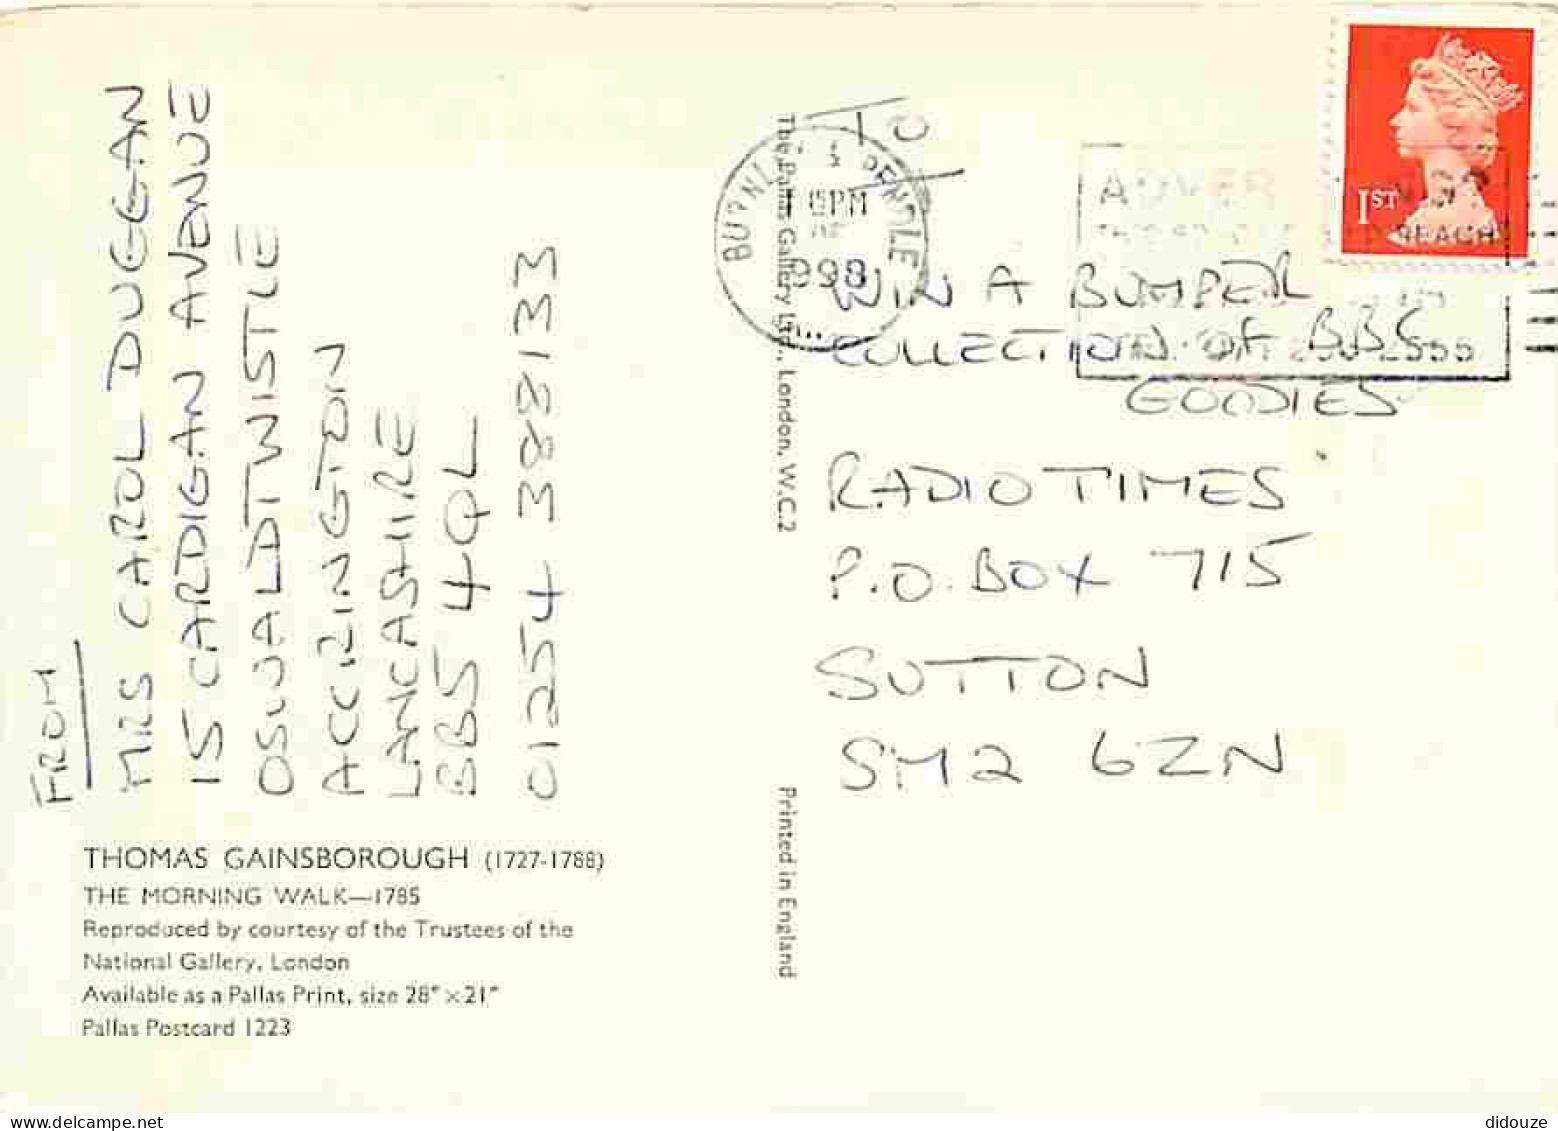 FROM
MRS CAROL DUGGAN
15 CARDIGAN AVENUE
OSWALDTWISTLE
ACCRINGTON
LANCASHIRE
BB5 4QL
01254 388133
THOMAS GAINSBOROUGH (1727-1788)
THE MORNING WALK—1785
Reproduced by courtesy of the Trustees of the
National Gallery, London
Available as a Pallas Print, size 28" × 21"
Pallas Postcard 1223
The Pallas Gallery Ltd., London, W.C.2
Printed in England
TO
BURNLEY & PENDLE
PM
1998
ADVER
REACH
1ST
WIN A BUMPER
COLLECTION OF BBC
GOODIES
RADIO TIMES
P.O. BOX 715
SUTTON
SM2 6ZN
delcampe.net
didouze